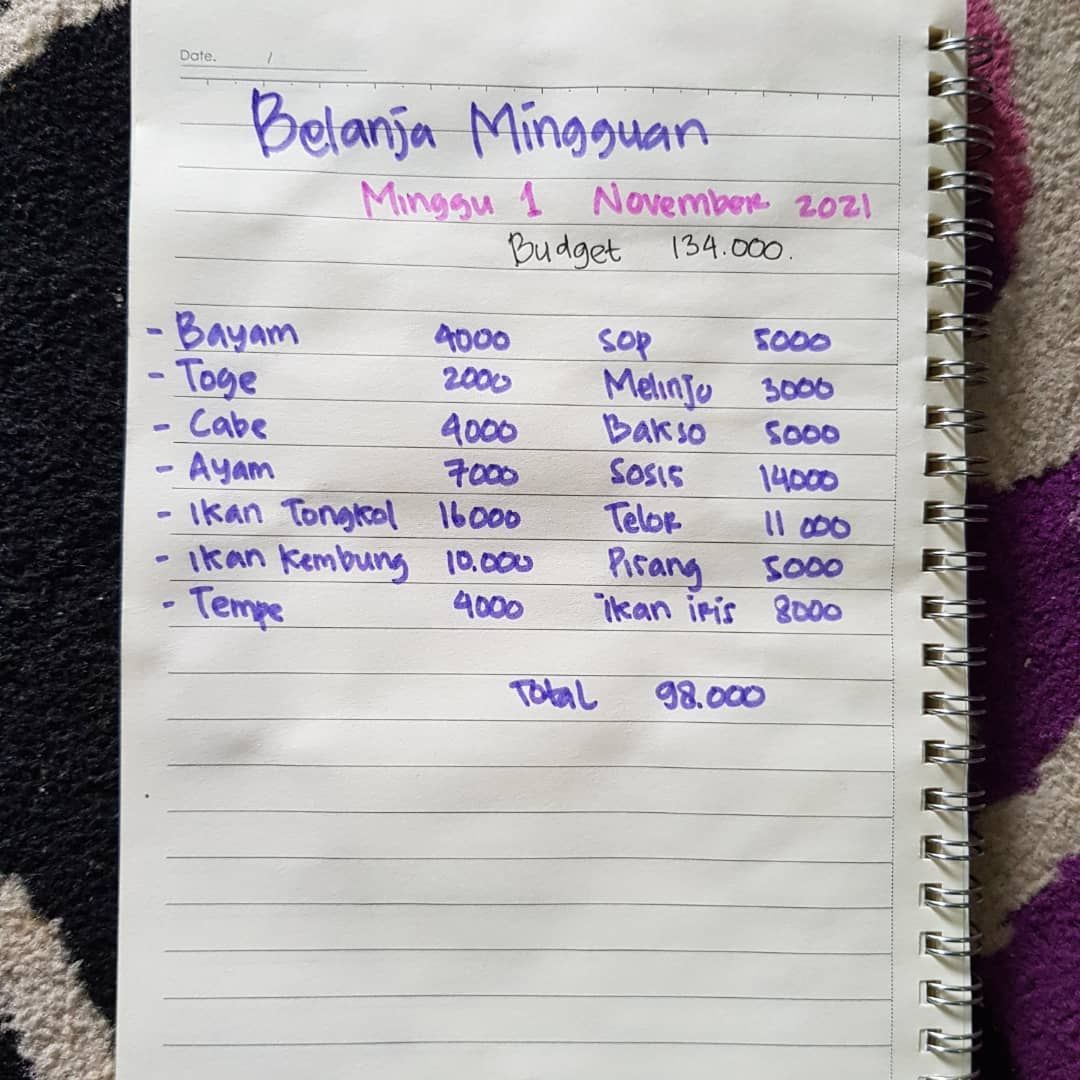 Date. /
Belanja Mingguan
Minggu 1 November 2021
Budget 134.000.
- Bayam 4000 Sop 5000
- Toge 2000 Melinjo 3000
- Cabe 4000 Bakso 5000
- Ayam 7000 Sosis 14000
- Ikan Tongkol 16000 Telor 11 000
- Ikan Kembung 10.000 Pisang 5000
- Tempe 4000 ikan iris 8000
Total 98.000